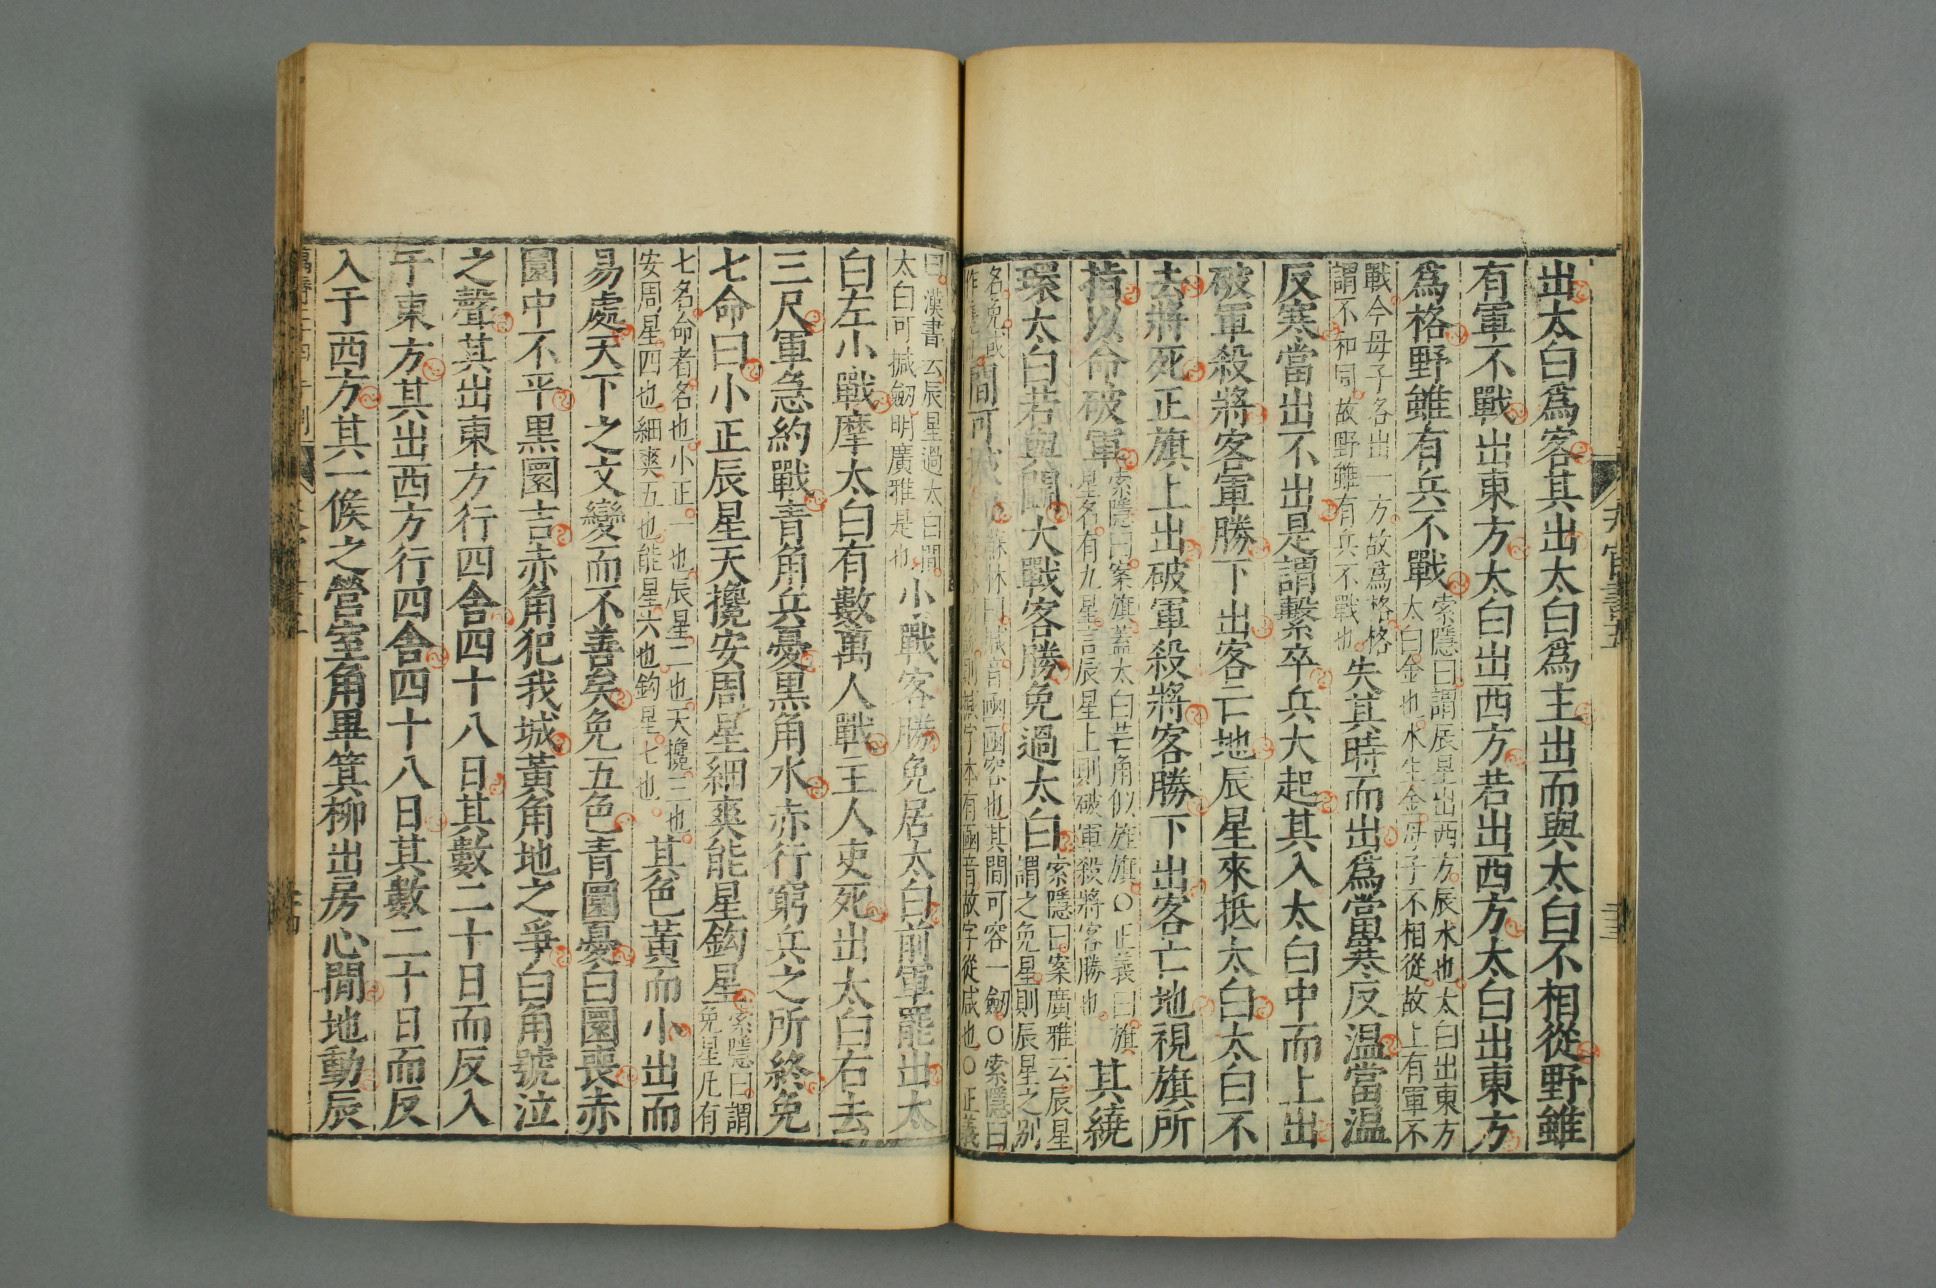 出太白爲客其出太白爲主出而與太白不相從野雖
有軍不戰出東方太白出西方若出西方太白出東方
爲格野雖有兵不戰
索隱曰謂辰星出西方辰水也太白出東方
太白金也水生金母子不相從故上有軍不
戰今母子各出一方故爲格格
謂不和同故野雖有兵不戰也
失其時而出爲當寒反温當温
反寒當出不出是謂擊卒兵大起其入太白中而上出
破軍殺將客軍勝下出客亡地辰星來抵太白太白不
去將死正旗上出破軍殺將客勝下出客亡地視旗所
指以命破軍
索隱曰案旗蓋太白芒角似旌旗○正義曰旗
星名有九星言辰星上則破軍殺將客勝也
其繞
環太白若與鬬大戰客勝免過太白
索隱曰案廣雅云辰星
謂之免星則辰星之別
名免或
間可
蘇林曰
音函函容也其間可容一劒○索隱曰
有函音故字從咸也○正義
曰漢書云辰星過太白間
太白可椷劒明廣雅是也
小戰客勝免居太白前軍罷出太
白左小戰摩太白有數萬人戰主人吏死出太白右去
三尺軍急約戰青角兵憂黑角水赤行窮兵之所終免
七命曰小正辰星天攙安周星細爽能星鈎星
索隱曰謂
免星凡有
七名命者名也小正一也辰星二也天攙三也
安周星四也細爽五也能星六也鈎星七也
其色黃而小出而
易處天下之文變而不善矣免五色青圜憂白圜喪赤
圜中不平黑圜吉赤角犯我城黃角地之爭白角號泣
之聲其出東方行四舍四十八日其數二十日而反入
于東方其出西方行四舍四十八日其數二十日而反
入于西方其一候之營室角畢箕柳出房心間地動辰